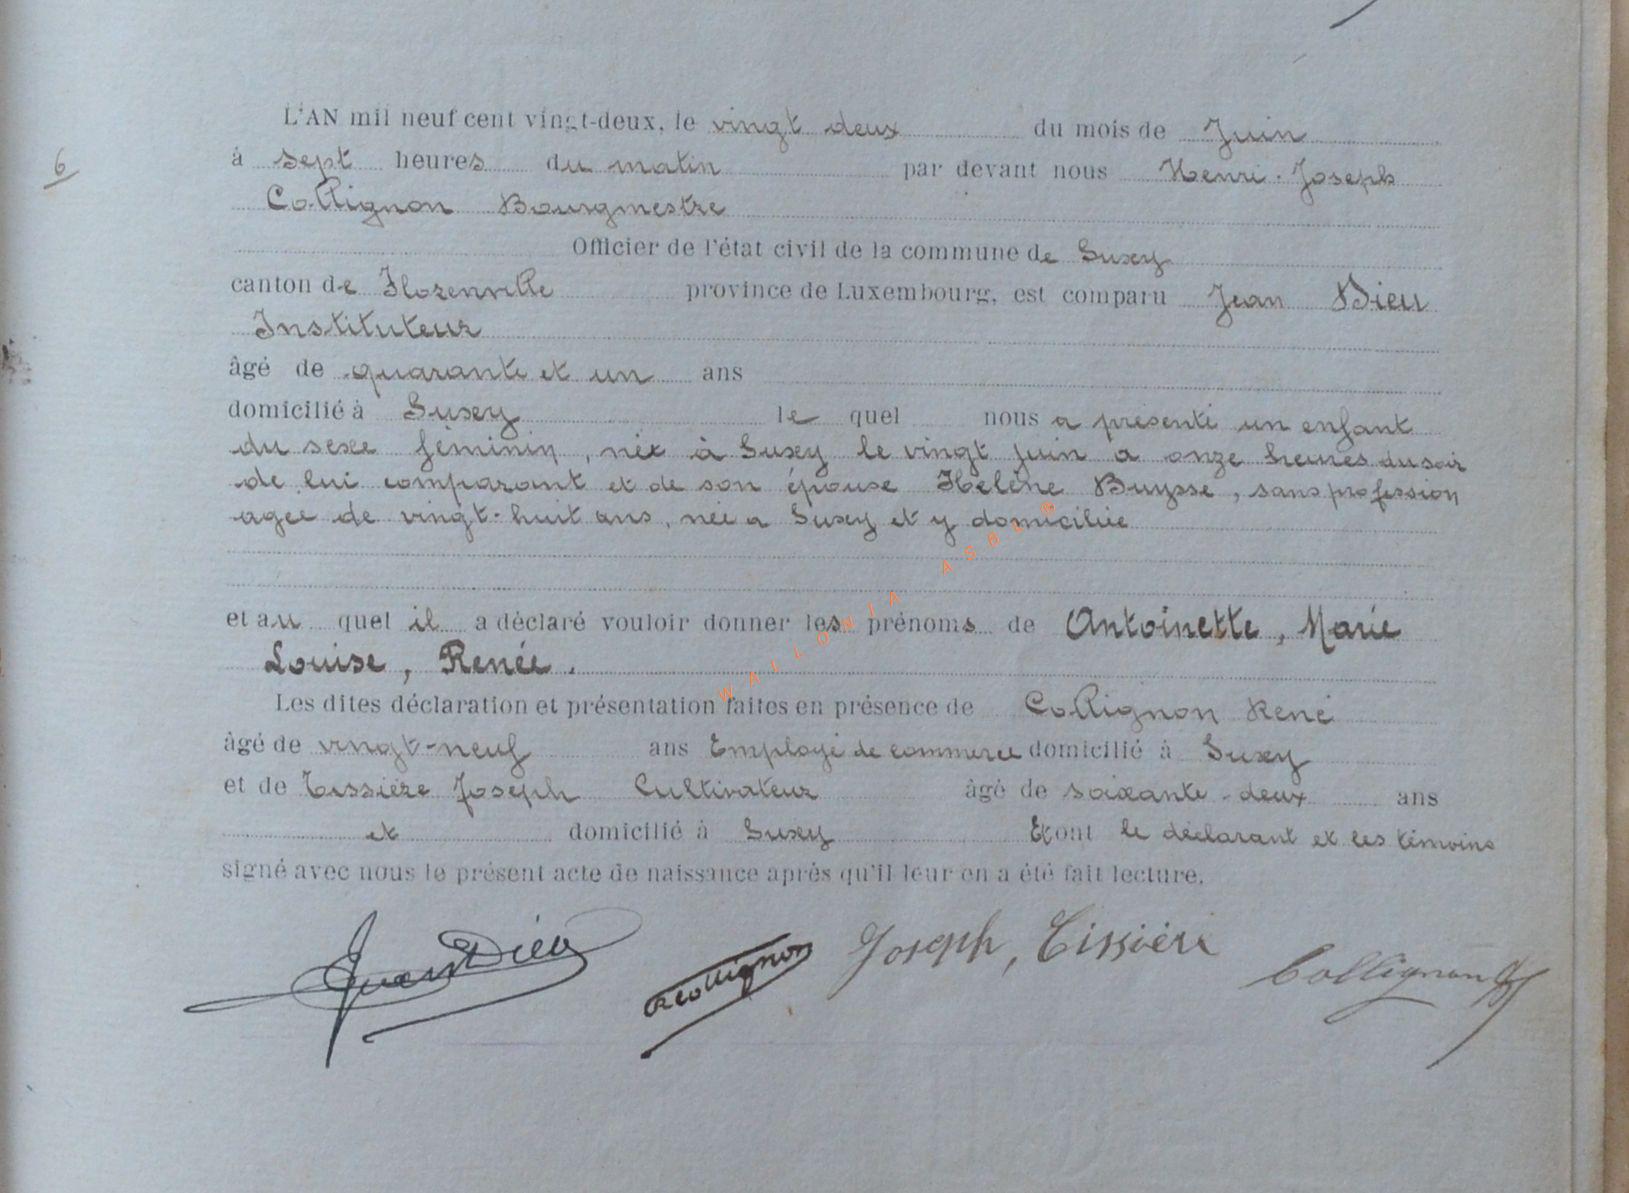 L'AN mil neuf cent vingt-deux, le vingt deux du mois de Juin
6
à sept heures du matin par devant nous Henri-Joseph
Collignon Bourgmestre
Officier de l'état civil de la commune de Suxy
canton de Florenville province de Luxembourg, est comparu Jean Dieu
Instituteur
âgé de quarante et un ans
domicilié à Suxy le quel nous a présenté un enfant
du sexe féminin, née à Suxy le vingt juin a onze heures du soir
de lui comparant et de son épouse Hélène Buysse, sans profession
agee de vingt-huit ans, née a Suxy et y domiciliée
et au quel il a déclaré vouloir donner les prénoms de Antoinette, Marie
Louise, Renée.
Les dites déclaration et présentation faites en présence de Collignon René
âgé de vingt-neuf ans Employé de commerce domicilié à Suxy
et de Tissière Joseph Cultivateur âgé de soixante-deux ans
et domicilié à Suxy Et ont le déclarant et les témoins
signé avec nous le présent acte de naissance après qu'il leur en a été fait lecture.
Jean Dieu RCollignon Joseph, Tissière Collignon
WALLONIA ASBL ©